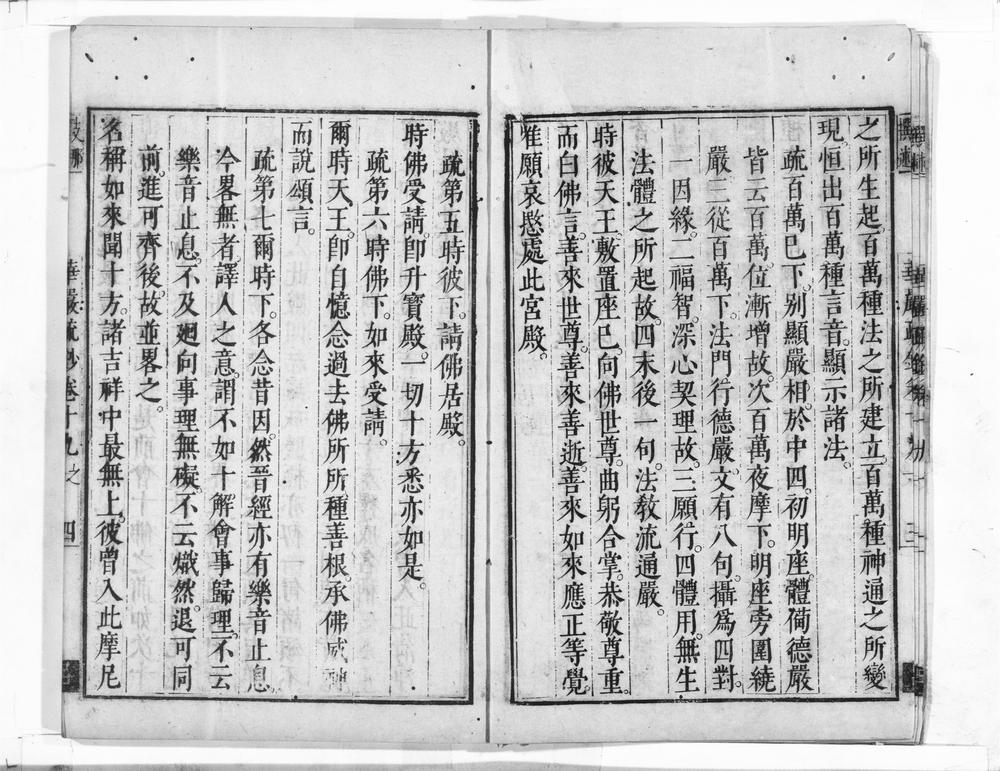 之所生起。百萬種法之所建立。百萬種神通之所變
現。恒出百萬種言音。顯示諸法。
疏百萬巳下。别顯嚴相。於中四。初明座體僃德嚴
皆云百萬。位漸增故。次百萬夜摩下。明座旁圍繞
嚴。三從百萬下。法門行德嚴。文有八句。攝爲四對。
一因緣。二福智。深心契理故。三願行。四體用。無生
法體之所起故。四末後一句。法教流通嚴。
時彼天王。敷置座巳。向佛世尊。曲躬合掌。恭敬尊重
而白佛言。善來世尊。善來善逝。善來如來應正等覺。
惟願哀愍處此宮殿。
疏第五時彼下。請佛居殿。
時佛受請。卽升寶殿。一切十方悉亦如是。
疏第六時佛下。如來受請。
爾時天王。卽自憶念過去佛所所種善根。承佛威神
而說頌言。
疏第七爾時下。各念昔因。然晉經亦有樂音止息
今畧無者。譯人之意。謂不如十解會事歸理。不云
樂音止息。不及廻向事理無礙。不云熾然。退可同
前。進可齊後。故並畧之。
名稱如來聞十方。諸吉祥中最無上。彼曾入此摩尼
華嚴疏鈔卷十九之
四